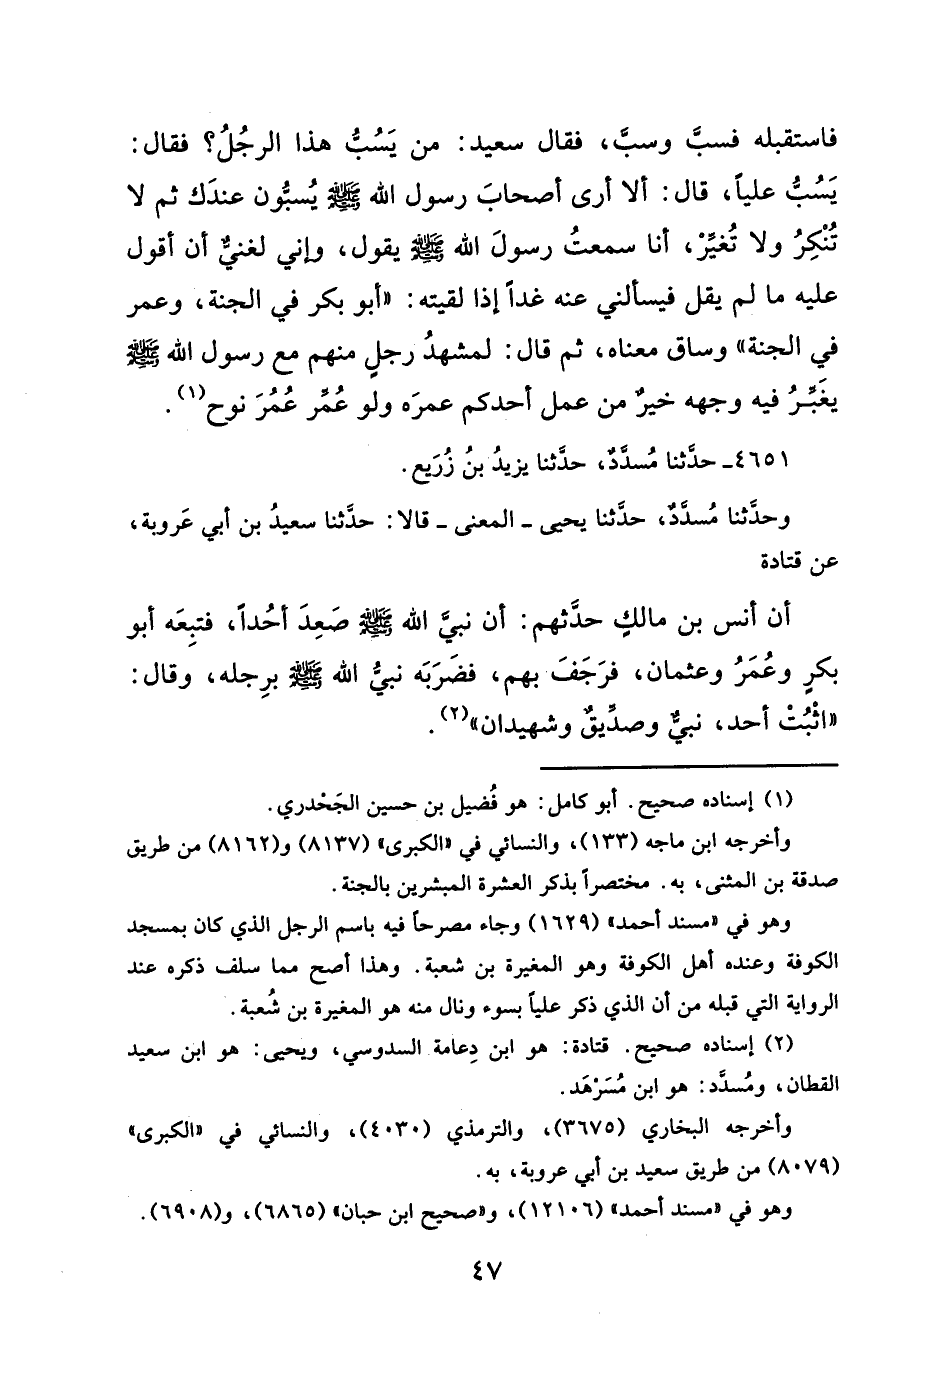 فاستقبله فسبَّ وسبَّ، فقال سعيد: من يَسُبُّ هذا الرجُلُ؟ فقال:
يَسُبُّ علياً، قال: ألا أرى أصحابَ رسول الله ﷺ يُسبُّون عندَك ثم لا
تُنْكِرُ ولا تُغيِّرْ، أنا سمعتُ رسولَ الله ﷺ يقول، وإني لغنيٌّ أن أقول
عليه ما لم يقل فيسألني عنه غداً إذا لقيته: «أبو بكر في الجنة، وعمر
في الجنة» وساق معناه، ثم قال: لمشهدُ رجلٍ منهم مع رسول الله ﷺ
يغَبِّرُ فيه وجهه خيرٌ من عمل أحدكم عمرَه ولو عُمِّر عُمُرَ نوح(١).
٤٦٥١ـ حدَّثنا مُسدَّدٌ، حدَّثنا يزيدُ بنُ زُرَيع.
وحدَّثنا مُسدَّدٌ، حدَّثنا يحيى ـ المعنى ـ قالا: حدَّثنا سعيدُ بن أبي عَروبة،
عن قتادة
أن أنس بن مالكٍ حدَّثهم: أن نبيَّ الله ﷺ صَعِدَ أحُداً، فتبِعَه أبو
بكرٍ وعُمَرُ وعثمان، فرَجَفَ بهم، فضَرَبَه نبيُّ الله ﷺ برِجله، وقال:
«اثْبُتْ أحد، نبيٌّ وصدِّيقٌ وشهيدان»(٢).
(١) إسناده صحيح. أبو كامل: هو فُضيل بن حسين الجَحْدري.
وأخرجه ابن ماجه (١٣٣)، والنسائي في «الكبرى» (٨١٣٧) و(٨١٦٢) من طريق
صدقة بن المثنى، به. مختصراً بذكر العشرة المبشرين بالجنة.
وهو في «مسند أحمد» (١٦٢٩) وجاء مصرحاً فيه باسم الرجل الذي كان بمسجد
الكوفة وعنده أهل الكوفة وهو المغيرة بن شعبة. وهذا أصح مما سلف ذكره عند
الرواية التي قبله من أن الذي ذكر علياً بسوء ونال منه هو المغيرة بن شُعبة.
(٢) إسناده صحيح. قتادة: هو ابن دِعامة السدوسي، ويحيى: هو ابن سعيد
القطان، ومُسدَّد: هو ابن مُسَرْهَد.
وأخرجه البخاري (٣٦٧٥)، والترمذي (٤٠٣٠)، والنسائي في «الكبرى»
(٨٠٧٩) من طريق سعيد بن أبي عروبة، به.
وهو في «مسند أحمد» (١٢١٠٦)، و«صحيح ابن حبان» (٦٨٦٥)، و(٦٩٠٨).
٤٧